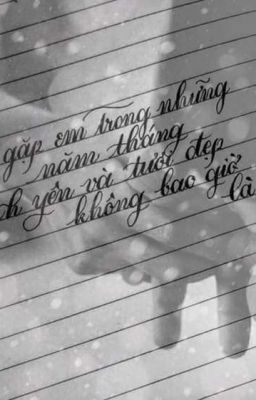 gặp em trong những
năm tháng
h yên và tươi đẹp
không bao giờ
là